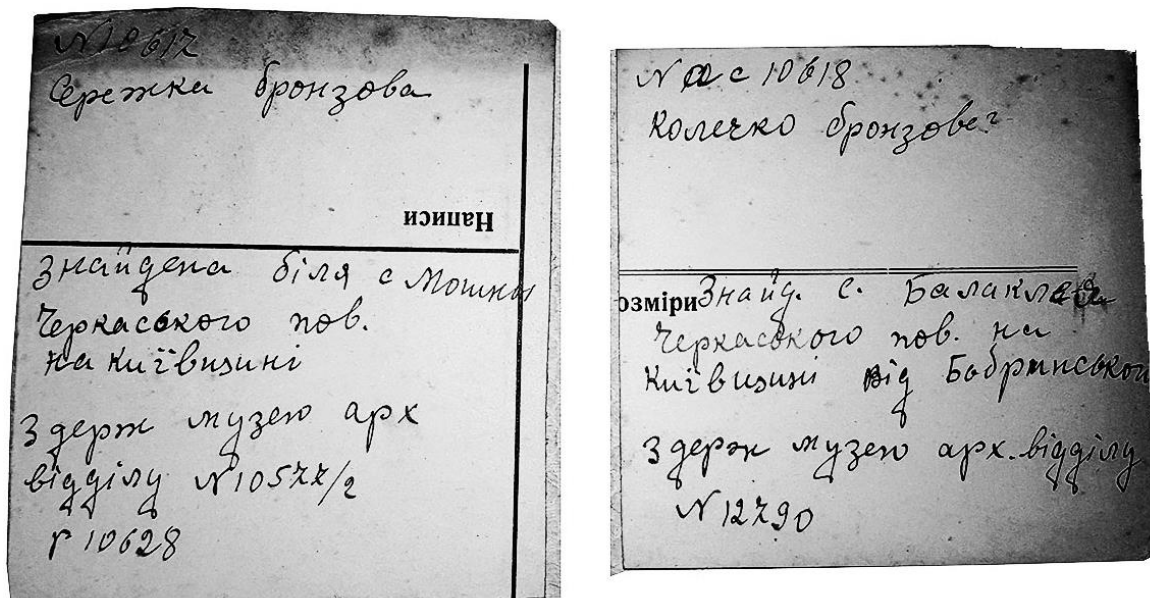 N10617
Сережка бронзова
Написи
Знайдена біля с Мошни
Черкаського пов.
на Київщині
З держ музею арх
відділу N10577/2
10628
N ас 10618
Колечко бронзове
озміри
Знайд. с. Балаклея
Черкаського пов. на
Київщині від Бобринського
З держ музею арх. відділу
N12790